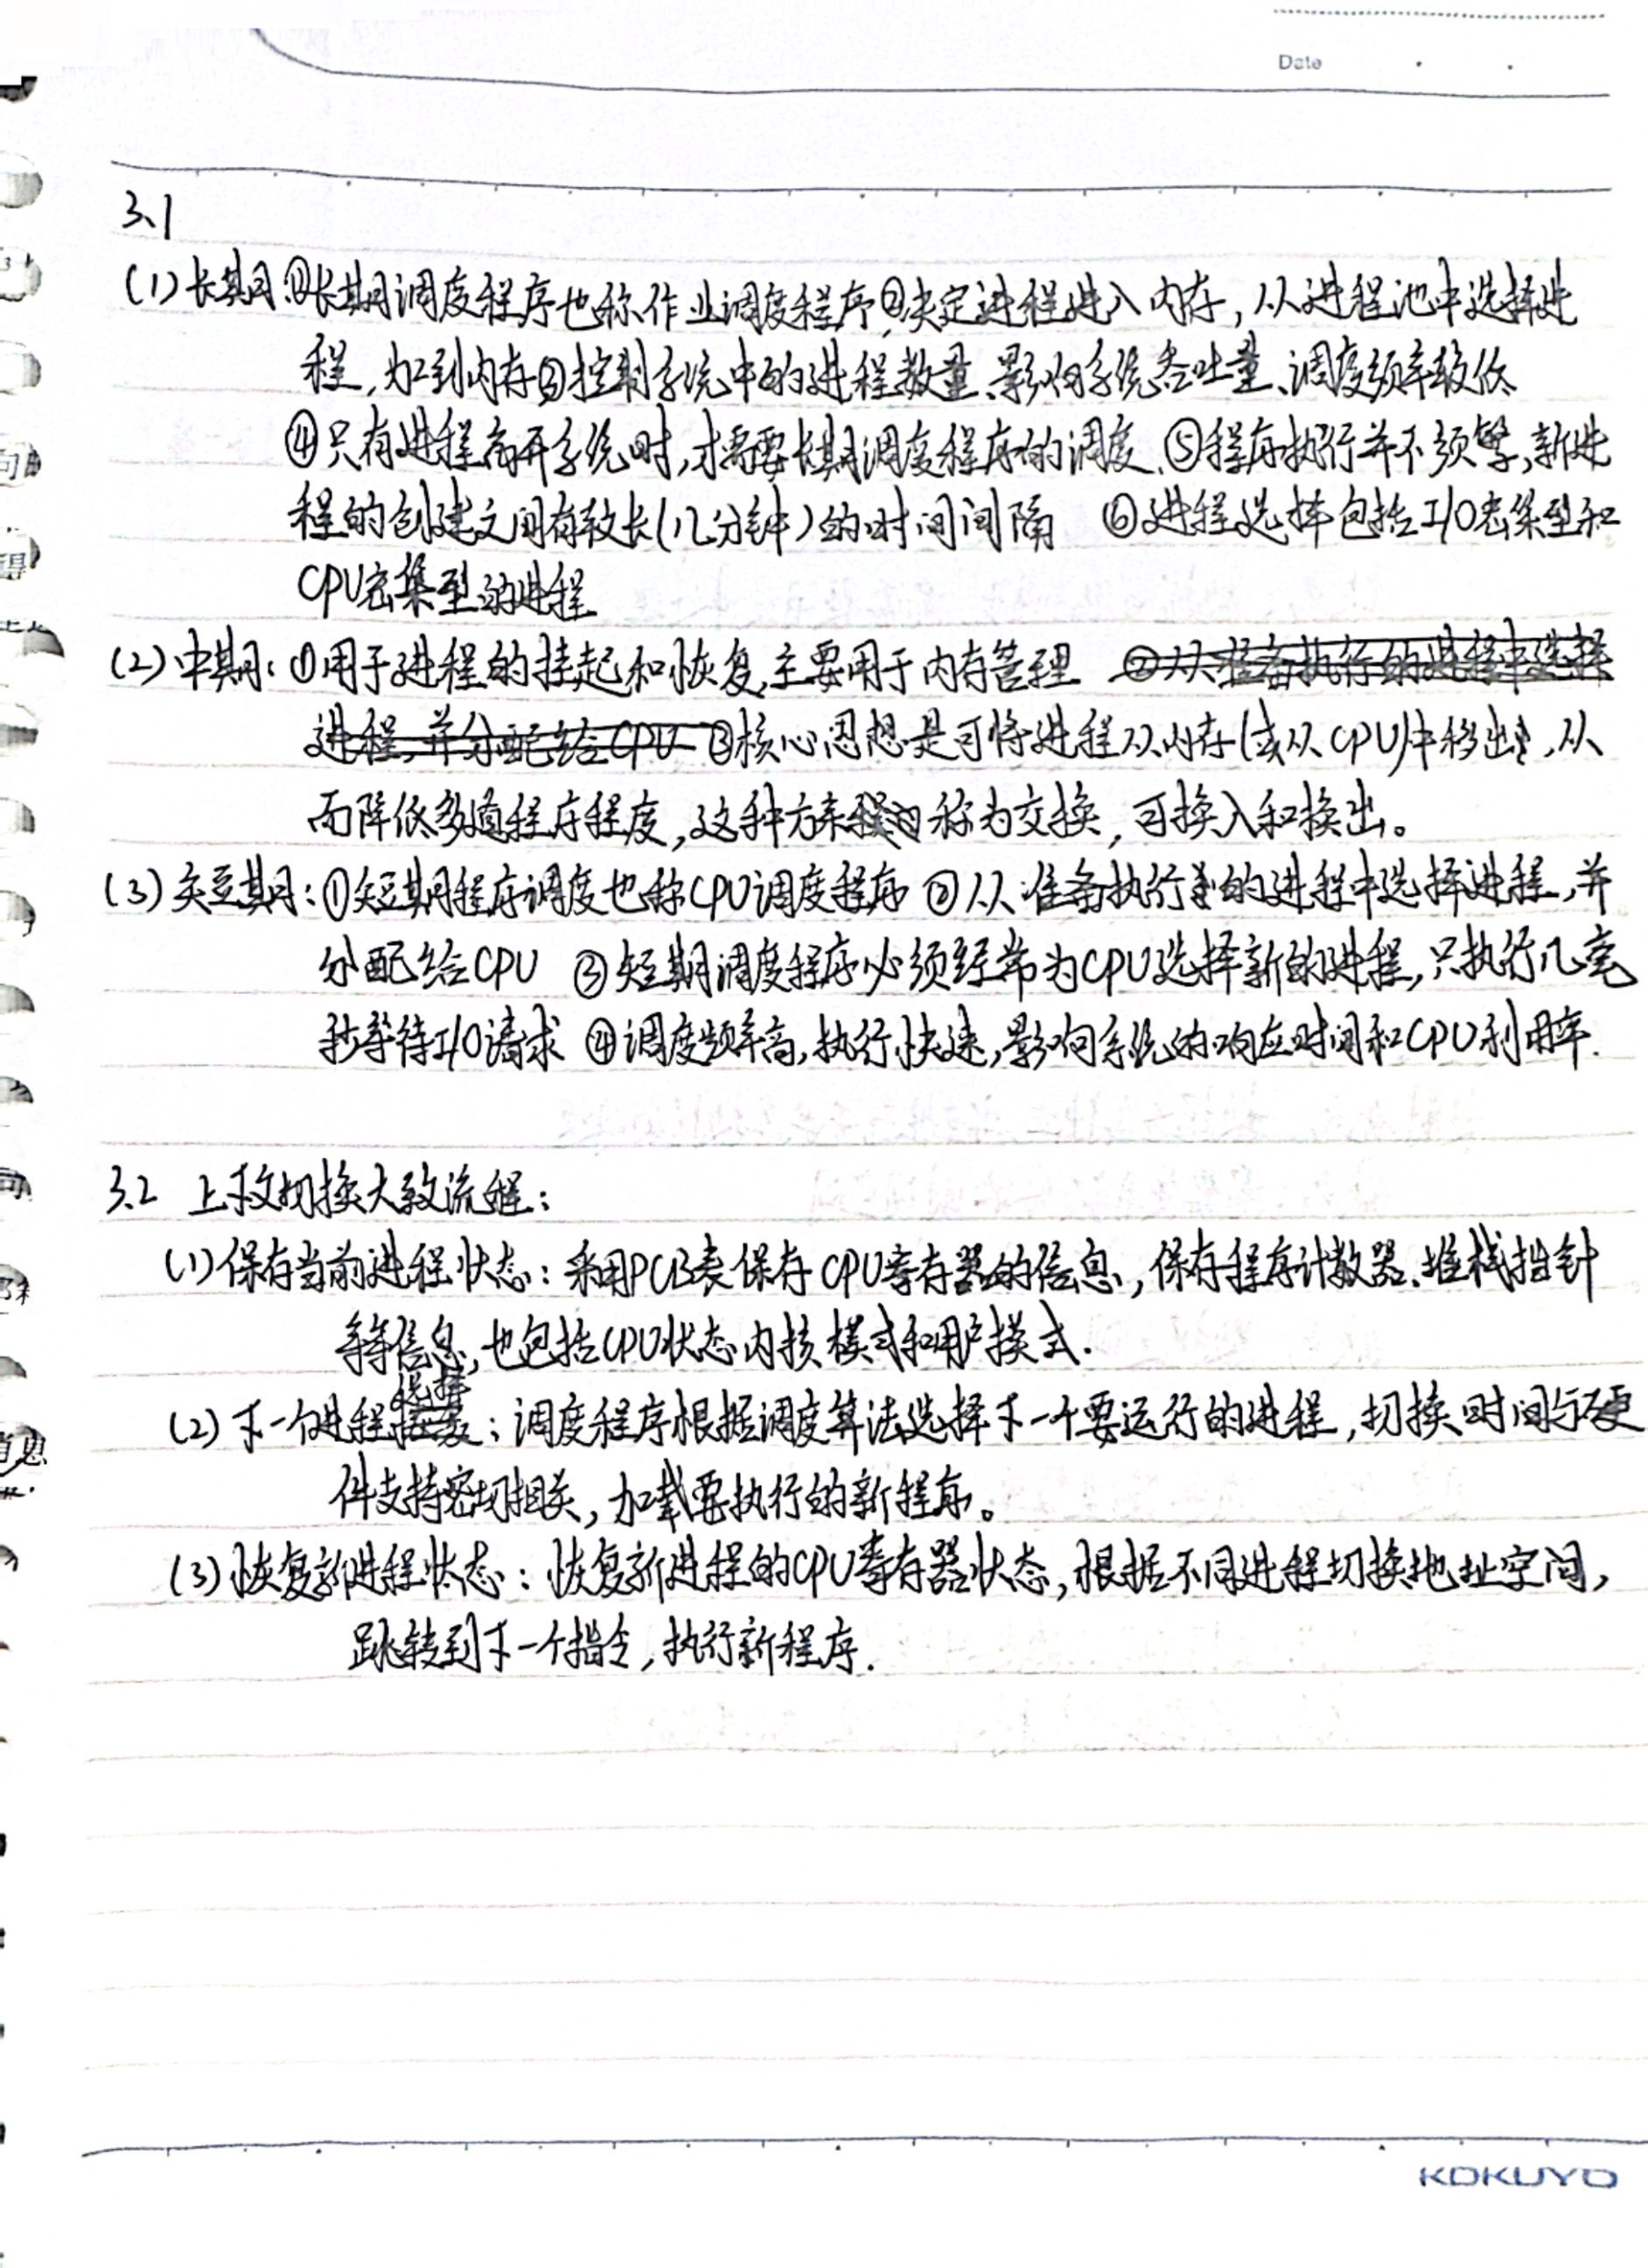 Date
3.1
(1)长期:①长期调度程序也称作业调度程序②决定进程进入内存,从进程池中选择进
程,加到内存③控制系统中的进程数量、影响系统吞吐量、调度频率较低
④只有进程离开系统时,才需要长期调度程序的调度、⑤程序执行并不频繁,新进
程的创建之间有较长(几分钟)的时间间隔 ⑥进程选择包括I/O密集型和
CPU密集型的进程
(2)中期:①用于进程的挂起和恢复,主要用于内存管理 ②从准备执行的进程中选择
进程,并分配给CPU ②核心思想是可将进程从内存(或从CPU)中移出,从
而降低多道程序程度,这种方案称为交换,可换入和换出。
(3)短期:①短期程序调度也称CPU调度程序 ②从准备执行的进程中选择进程,并
分配给CPU ③短期调度程序必须经常为CPU选择新的进程,只执行几毫
秒等待I/O请求 ④调度频率高,执行快速,影响系统的响应时间和CPU利用率.
3.2 上下文切换大致流程:
(1)保存当前进程状态:采用PCB表保存CPU寄存器的信息,保存程序计数器、堆栈指针
等等信息,也包括CPU状态内核模式和用户模式.
选择
(2)下一个进程:调度程序根据调度算法选择下一个要运行的进程,切换时间与硬
件支持密切相关,加载要执行的新程序。
(3)恢复新进程状态:恢复新进程的CPU寄存器状态,根据不同进程切换地址空间,
跳转到下一个指令,执行新程序.
KOKUYO